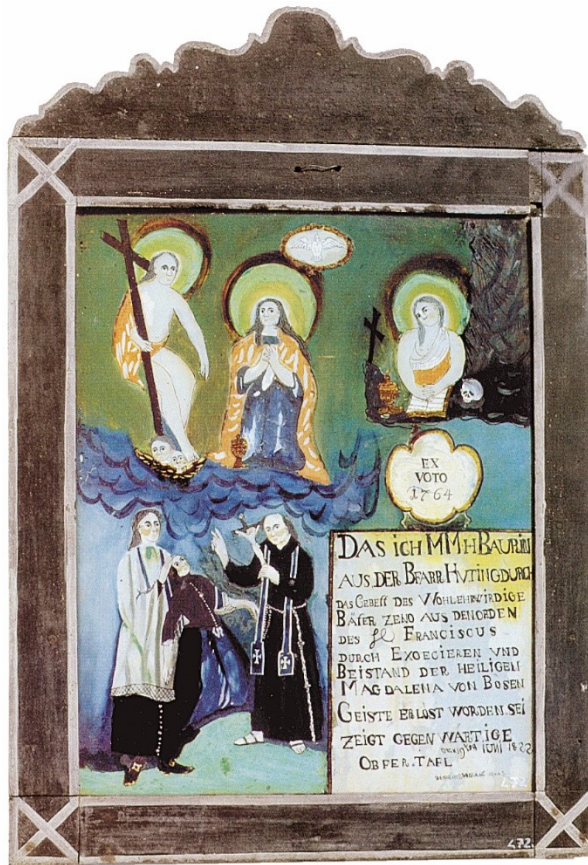 EX
VOTO
1764
DAS ICH MMH BAURIN
AUS DER BFARR HVTING DURCH
DAS GEBETT DES WOHLEHRWIRDIGE
BATER ZENO AUS DEN ORDEN
DES Hl FRANCISCUS
DURCH EXOECIEREN VND
BEISTAND DER HEILIGEN
MAGDALENA VON BOSEN
GEISTE ERLÖST WORDEN SEI
ZEIGT GEGENWÄRTIGE
OBFER. TAFL
IUNI 1822
472